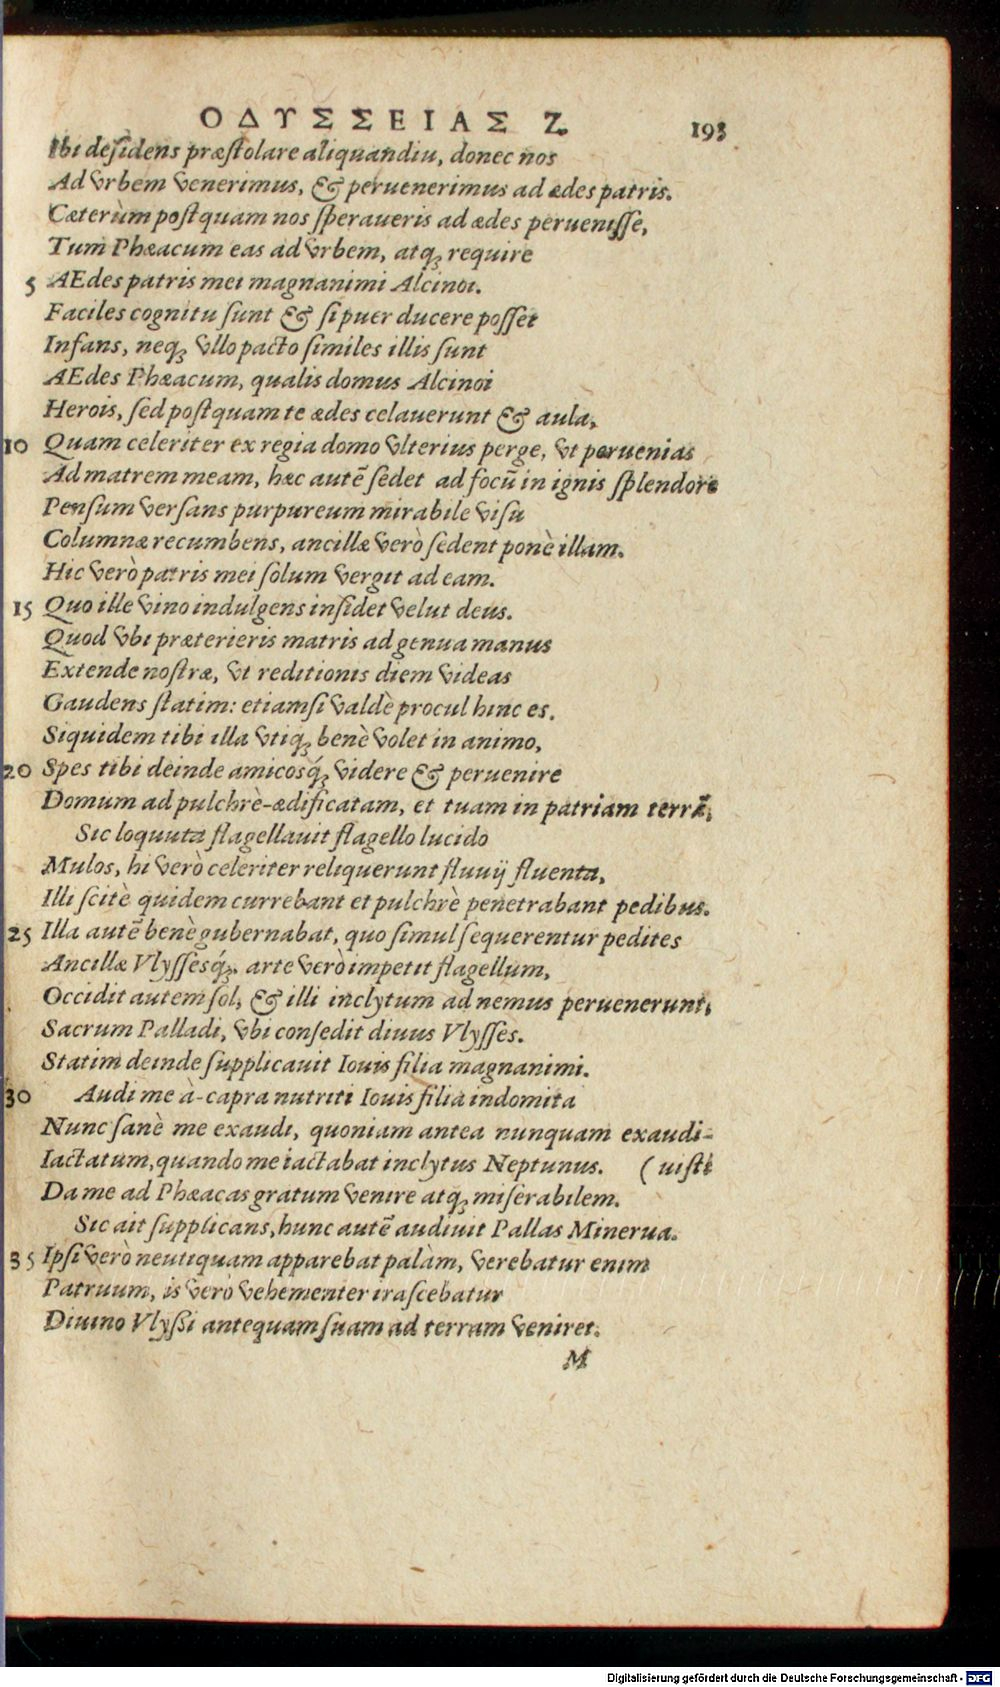 ΟΔΥΣΣΕΙΑΣ Ζ. 193
Ibi desidens præstolare aliquandiu, donec nos
Ad vrbem venerimus, & peruenerimus ad ædes patris.
Cæterùm postquam nos speraueris ad ædes peruenisse,
Tum Phæacum eas ad vrbem, atq; require
5 AEdes patris mei magnanimi Alcinoi.
Faciles cognitu sunt & si puer ducere posset
Infans, neq; vllo pacto similes illis sunt
AEdes Phæacum, qualis domus Alcinoi
Herois, sed postquam te ædes celauerunt & aula,
10 Quam celeriter ex regia domo vlterius perge, vt peruenias
Ad matrem meam, hæc autē sedet ad focū in ignis splendore
Pensum versans purpureum mirabile visu
Columnæ recumbens, ancillæ verò sedent ponè illam.
Hic verò patris mei solum vergit ad eam.
15 Quo ille vino indulgens insidet velut deus.
Quod vbi præterieris matris ad genua manus
Extende nostræ, vt reditionis diem videas
Gaudens statim: etiamsi valdè procul hinc es.
Siquidem tibi illa vtiq; benè volet in animo,
20 Spes tibi deinde amicosq́; videre & peruenire
Domum ad pulchrè-ædificatam, et tuam in patriam terrā,
Sic loquuta flagellauit flagello lucido
Mulos, hi verò celeriter reliquerunt fluuij fluenta,
Illi scitè quidem currebant et pulchrè penetrabant pedibus.
25 Illa autē benè gubernabat, quo simul sequerentur pedites
Ancillæ Vlyssesq́;. arte verò impetit flagellum,
Occidit autem sol, & illi inclytum ad nemus peruenerunt,
Sacrum Palladi, vbi consedit diuus Vlysses.
Statim deinde supplicauit Iouis filia magnanimi.
30 Audi me à-capra nutriti Iouis filia indomita
Nunc sanè me exaudi, quoniam antea nunquam exaudi-
Iactatum, quando me iactabat inclytus Neptunus. (uisti
Da me ad Phæacas gratum venire atq; miserabilem.
Sic ait supplicans, hunc autē audiuit Pallas Minerua.
35 Ipsi verò neutiquam apparebat palàm, verebatur enim
Patruum, is verò vehementer irascebatur
Diuino Vlyssi antequam suam ad terram veniret.
M
Digitalisierung gefördert durch die Deutsche Forschungsgemeinschaft - DFG